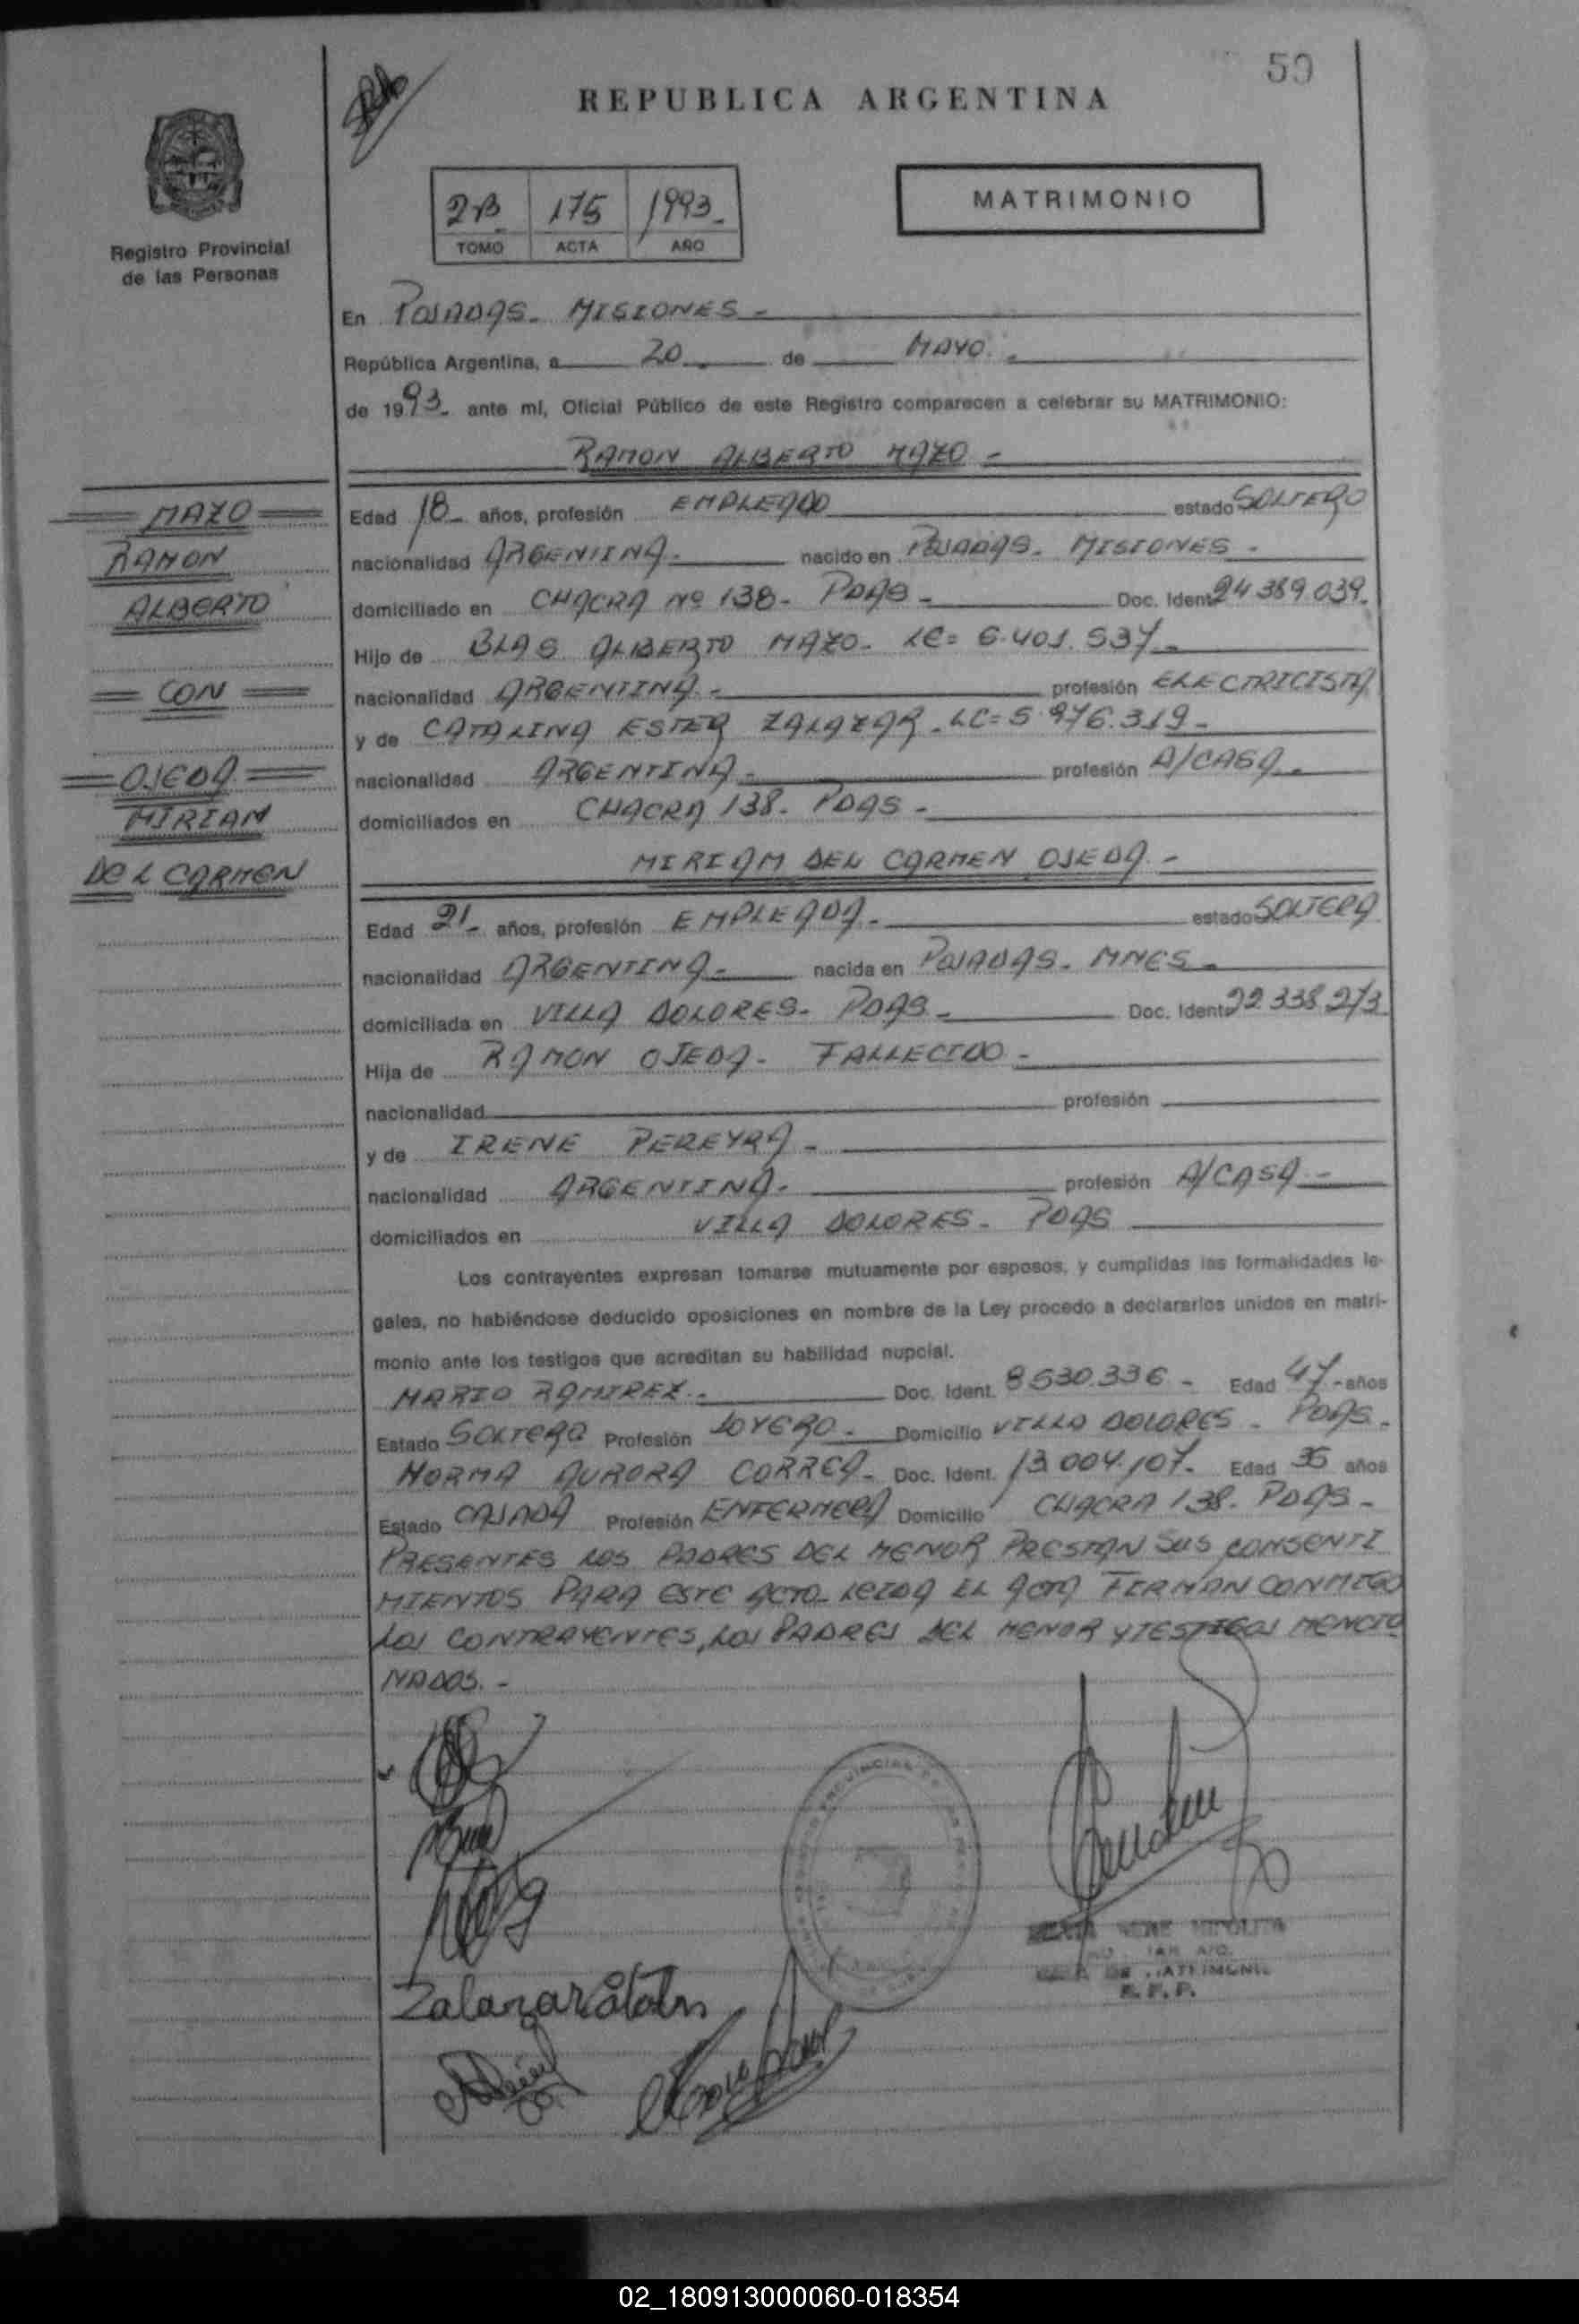 59
REPUBLICA ARGENTINA
Registro Provincial
de las Personas
2B 175 1993
TOMO ACTA AÑO
MATRIMONIO
En POSADAS - MISIONES -
República Argentina, a 20 de MAYO.
de 1993 - ante mí, Oficial Público de este Registro comparecen a celebrar su MATRIMONIO:
RAMON ALBERTO MAZO -
MAZO
RAMON
ALBERTO
CON
OJEDA
MIRIAM
DEL CARMEN
Edad 18 - años, profesión EMPLEADO estado SOLTERO
nacionalidad ARGENTINA - nacido en POSADAS - MISIONES -
domiciliado en CHACRA Nº 138 - PDAS - Doc. Ident. 24 389.039.
Hijo de BLAS ALBERTO MAZO - LE = 6.401.537 -
nacionalidad ARGENTINA - profesión ELECTRICISTA
y de CATALINA ESTER ZALAZAR - LC = 5.976.319 -
nacionalidad ARGENTINA - profesión A/CASA -
domiciliados en CHACRA 138 - PDAS -
MIRIAM DEL CARMEN OJEDA -
Edad 21 - años, profesión EMPLEADA - estado SOLTERA
nacionalidad ARGENTINA - nacida en POSADAS - MNES -
domiciliada en VILLA DOLORES - PDAS - Doc. Ident. 22.338.273
Hija de RAMON OJEDA - FALLECIDO -
nacionalidad profesión
y de IRENE PEREYRA -
nacionalidad ARGENTINA - profesión A/CASA -
domiciliados en VILLA DOLORES - PDAS
Los contrayentes expresan tomarse mutuamente por esposos, y cumplidas las formalidades le-
gales, no habiéndose deducido oposiciones en nombre de la Ley procedo a declararlos unidos en matri-
monio ante los testigos que acreditan su habilidad nupcial.
MARIO RAMIREZ - Doc. Ident. 8530.336 - Edad 47 - años
Estado SOLTERO Profesión JOYERO - Domicilio VILLA DOLORES - PDAS -
NORMA AURORA CORREA - Doc. Ident. 13 004.107 - Edad 35 años
Estado CASADA Profesión ENFERMERA Domicilio CHACRA 138 - PDAS -
PRESENTES LOS PADRES DEL MENOR PRESTAN SUS CONSENTI
MIENTOS PARA ESTE ACTO - LEIDA EL ACTA FIRMAN CONMIGO
LOS CONTRAYENTES, LOS PADRES DEL MENOR Y TESTIGOS MENCIO
NADOS. -
Zalazar
02_180913000060-018354